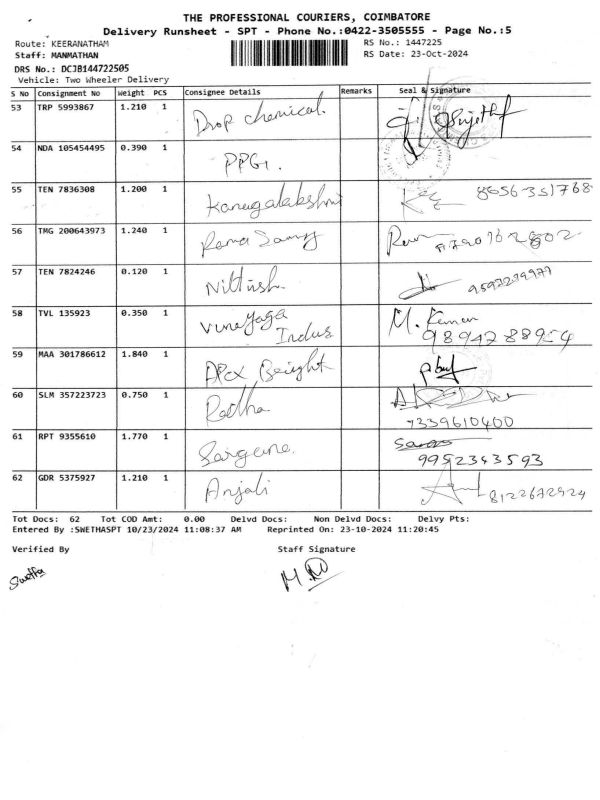 THE PROFESSIONAL COURIERS, COIMBATORE
Delivery Runsheet - SPT - Phone No.:0422-3505555 - Page No.:5
Route: KEERANATHAM RS No.: 1447225
Staff: MANMATHAN RS Date: 23-Oct-2024
DRS No.: DCJB144722505
Vehicle: Two Wheeler Delivery
S No Consignment No Weight PCS Consignee Details Remarks Seal & Signature
53 TRP 5993867 1.210 1 Drop chemical.
54 NDA 105454495 0.390 1 PPG1.
55 TEN 7836308 1.200 1 Kanagalakshmi 8656351768
56 TMG 200643973 1.240 1 Rama Samy
57 TEN 7824246 0.120 1 Nittish.
58 TVL 135923 0.350 1 Vinayaga Indus M. Kumar
9894288954
59 MAA 301786612 1.840 1 Apex Beight
60 SLM 357223723 0.750 1 Radha
7339610400
61 RPT 9355610 1.770 1
9952343593
62 GDR 5375927 1.210 1 Anjali 8122672924
Tot Docs: 62 Tot COD Amt: 0.00 Delvd Docs: Non Delvd Docs: Delvy Pts:
Entered By :SWETHASPT 10/23/2024 11:08:37 AM Reprinted On: 23-10-2024 11:20:45
Verified By Staff Signature
Swetha